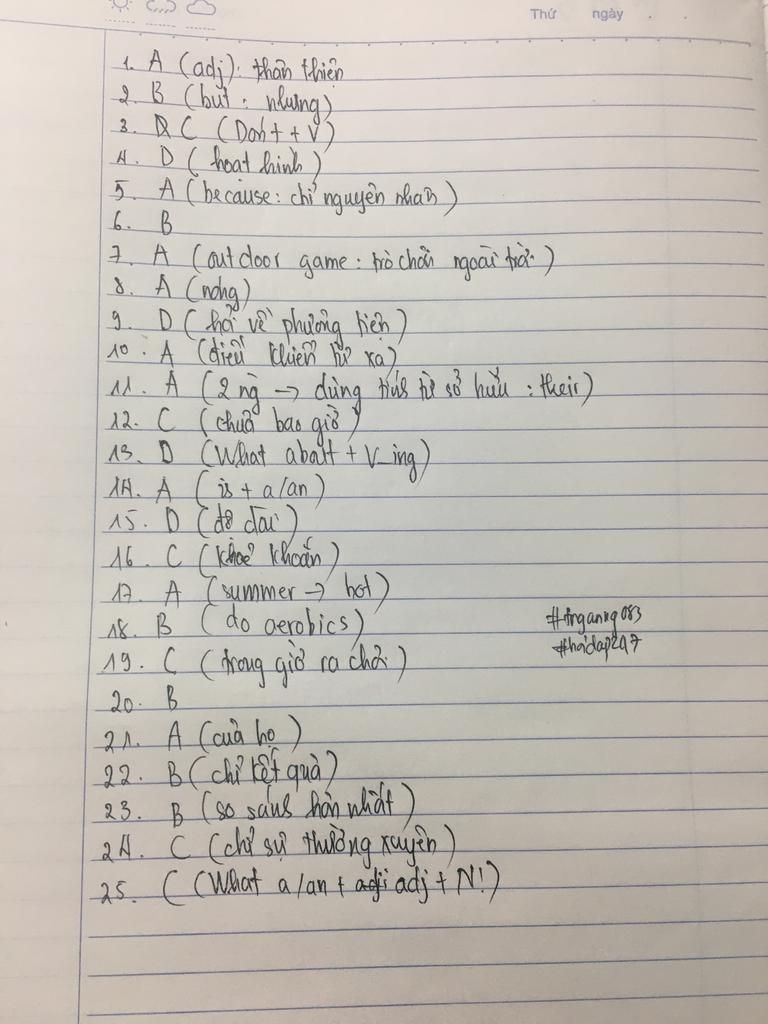 Thứ ngày
1. A (adj): thân thiện
2. B (but: nhưng)
3. C (Don't + V)
4. D (hoạt hình)
5. A (because: chỉ nguyên nhân)
6. B
7. A (outdoor game: trò chơi ngoài trời)
8. A (nóng)
9. D (hỏi về phương tiện)
10. A (điều khiển từ xa)
11. A (2 ng → dùng tính từ sở hữu: their)
12. C (chưa bao giờ)
13. D (What about + V_ing)
14. A (is + a/an)
15. D (độ dài)
16. C (khoẻ khoắn)
17. A (summer → hot)
18. B (do aerobics)
#hoidap247
19. C (trong giờ ra chơi)
20. B
21. A (của họ)
22. B (chỉ kết quả)
23. B (so sánh hơn nhất)
24. C (chỉ sự thường xuyên)
25. C (What a/an + adj + N!)